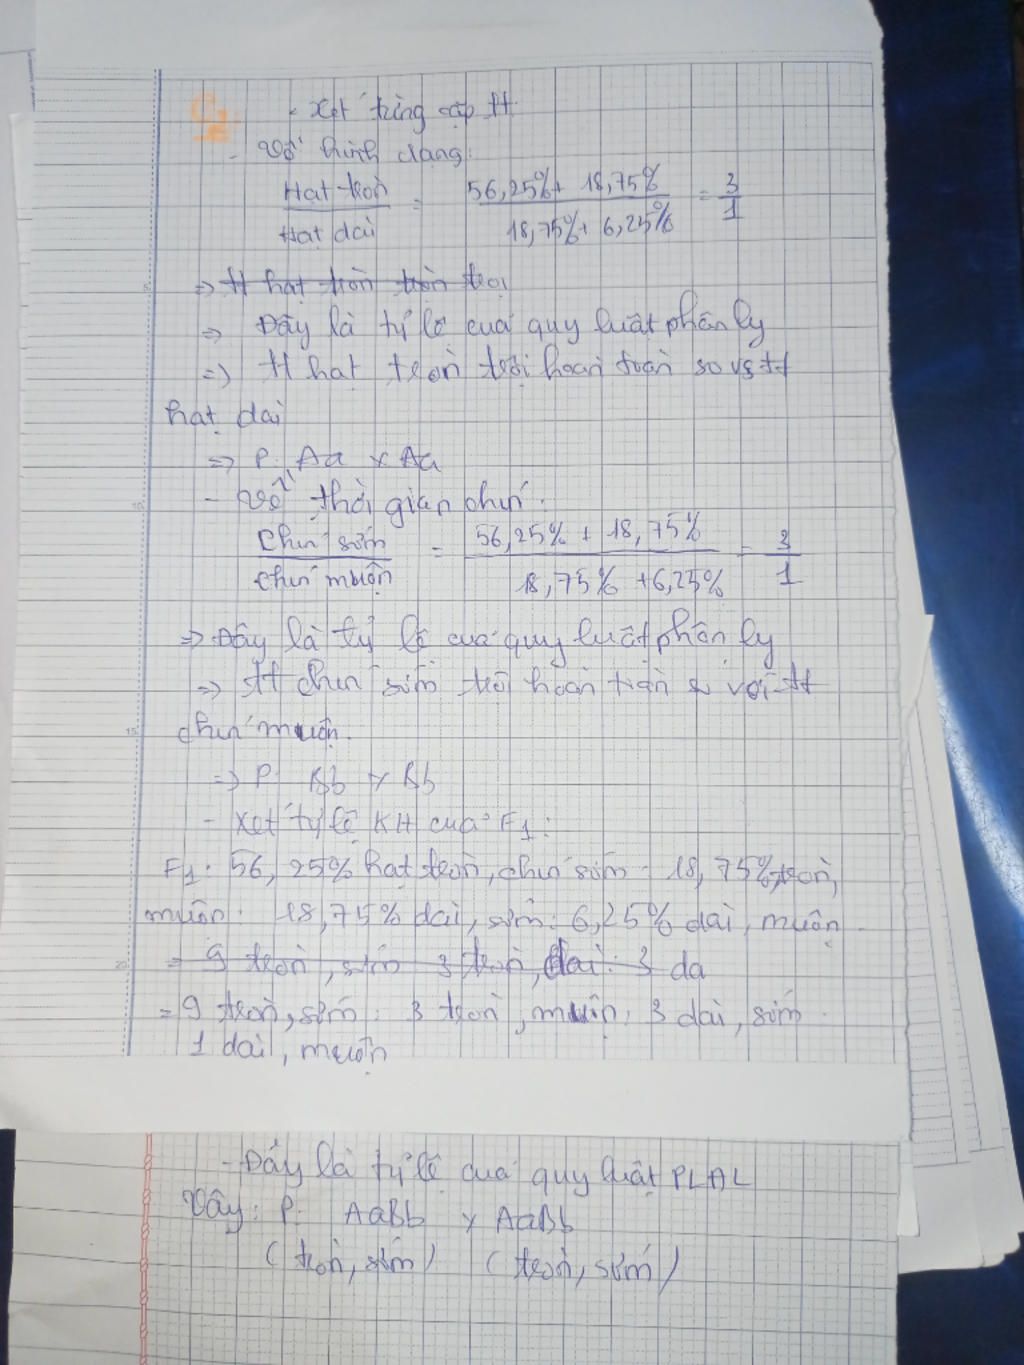 C1:
- Xét từng cặp tt
- Về hình dạng:
Hạt tròn / Hạt dài = 56,25% + 18,75% / 18,75% + 6,25% = 3 / 1
=> tt hạt tròn tròn trội
=> Đây là tỷ lệ của quy luật phân ly
=> tt hạt tròn trội hoàn toàn so vs tt
hạt dài
=> P: Aa x Aa
- Về thời gian chín:
Chín sớm / Chín muộn = 56,25% + 18,75% / 18,75% + 6,25% = 3 / 1
=> Đây là tỷ lệ của quy luật phân ly
=> tt chín sớm trội hoàn toàn so với tt
chín muộn.
=> P: Bb x Bb
- Xét tỷ lệ KH của F1:
F1: 56,25% hạt tròn, chín sớm : 18,75% tròn,
muộn : 18,75% dài, sớm : 6,25% dài, muộn
= 9 tròn, sớm 3 tròn, dài : 3 da
= 9 tròn, sớm : 3 tròn, muộn : 3 dài, sớm :
1 dài, muộn
- Đây là tỷ lệ của quy luật PLĐL
Vậy: P: AaBb x AaBb
(tròn, sớm) (tròn, sớm)